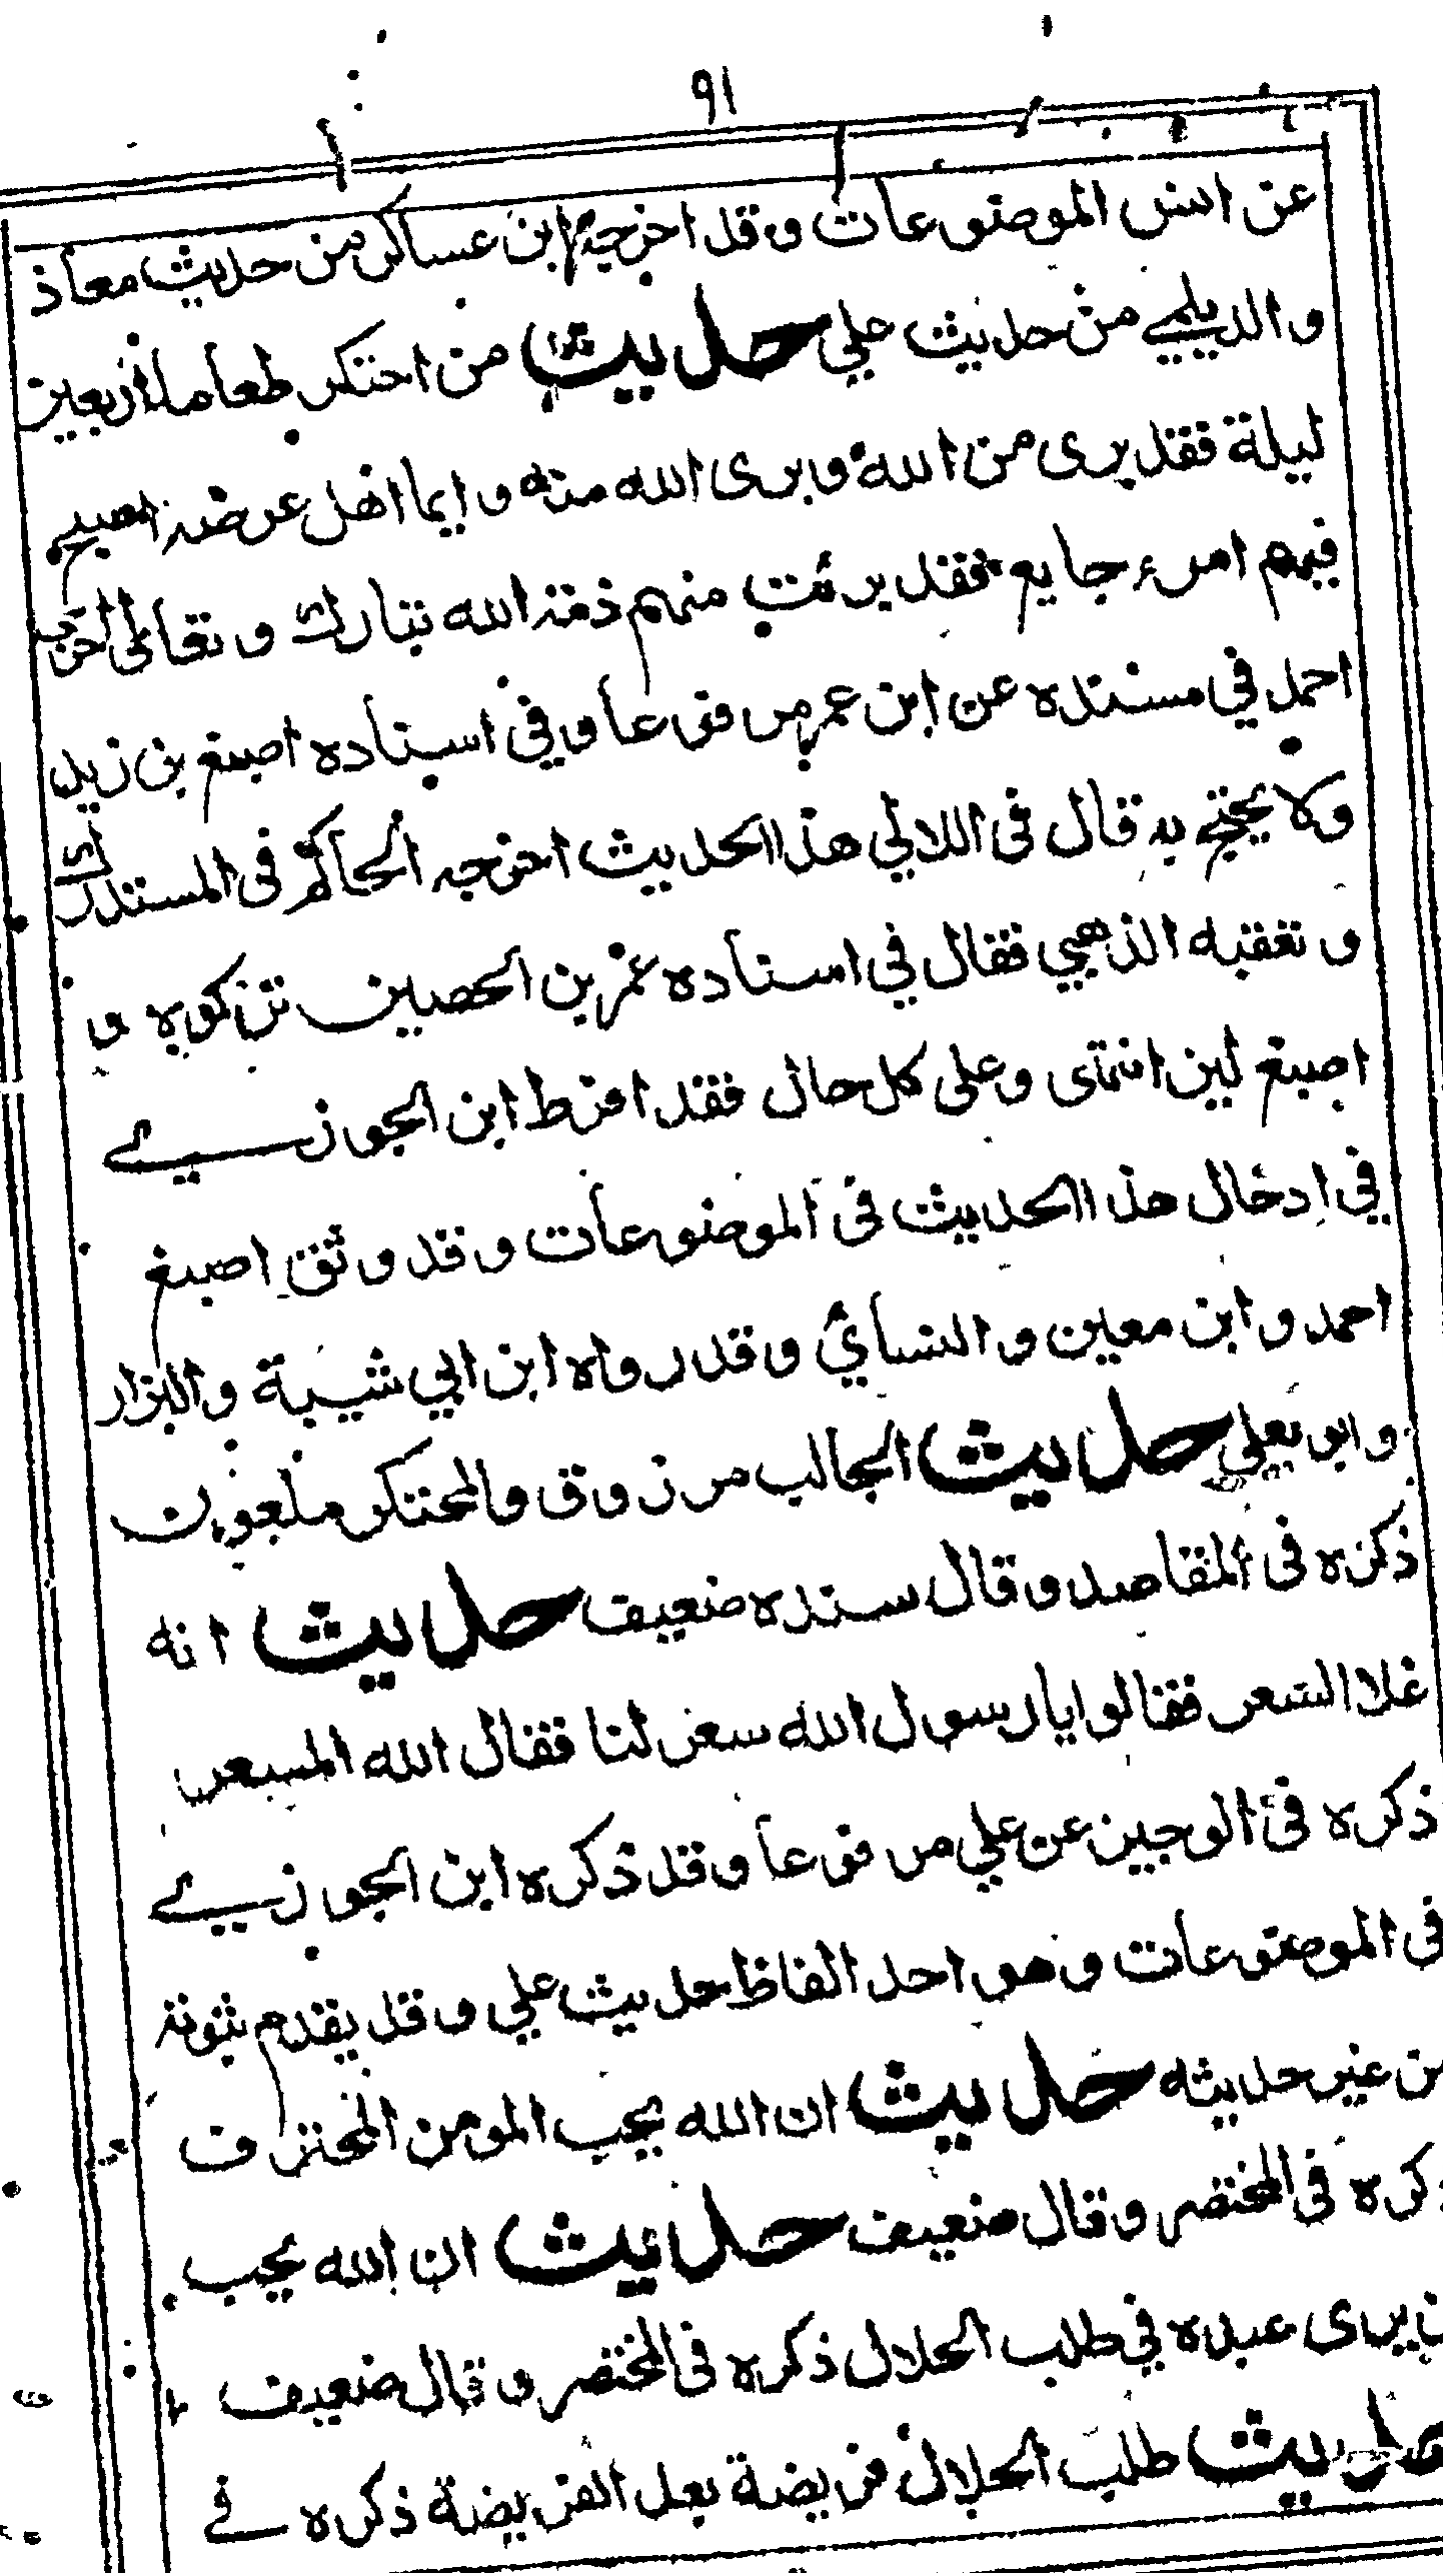 ٩١
عن انس الموضوعات وقد اخرجه ابن عساكر من حديث معاذ
والديلمي من حديث علي حديث من احتكر طعاما اربعين
ليلة فقد برى من الله وبرى الله منه وايما اهل عرضة اصبح
فيهم امرء جايع فقد برئت منهم ذمة الله تبارك وتعالى اخرجه
احمد في مسنده عن ابن عمر مرفوعا وفي اسناده اصبغ بن زيد
ولا يحتج به قال في اللالي هذا الحديث اخرجه الحاكم في المستدرك
وتعقبه الذهبي فقال في اسناده عمر بن الحصين تركوه و
اصبغ لين انتهى وعلى كل حال فقد افرط ابن الجوزي
في ادخال هذا الحديث في الموضوعات وقد وثق اصبغ
احمد وابن معين والنسائي وقد رواه ابن ابي شيبة والبزار
وابو يعلي حديث الجالب مرزوق والمحتكر ملعون
ذكره في المقاصد وقال سنده ضعيف حديث انه
غلا السعر فقالوا يا رسول الله سعر لنا فقال الله المسعر
ذكره في الوجيز عن علي مرفوعا وقد ذكره ابن الجوزي
في الموضوعات وهو احد الفاظ حديث علي وقد يقدم ثبوته
من غير حديثه حديث ان الله يحب المومن المحترف
ذكره في المختصر وقال ضعيف حديث ان الله يحب
ان يرى عبده في طلب الحلال ذكره في المختصر وقال ضعيف
حديث طلب الحلال فريضة بعد الفريضة ذكره في